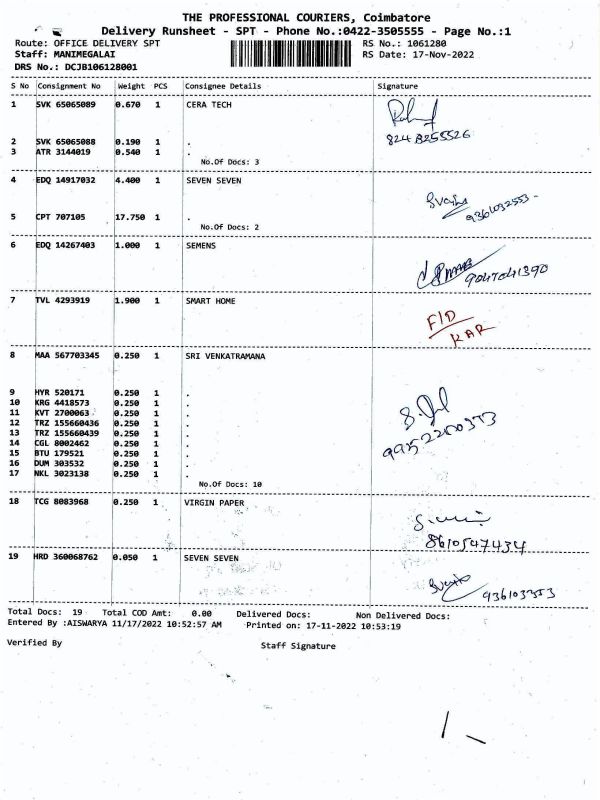 THE PROFESSIONAL COURIERS, Coimbatore
Delivery Runsheet - SPT - Phone No.:0422-3505555 - Page No.:1
Route: OFFICE DELIVERY SPT RS No.: 1061280
Staff: MANIMEGALAI RS Date: 17-Nov-2022
DRS No.: DCJB106128001
S No Consignment No Weight PCS Consignee Details Signature
1 SVK 65065089 0.670 1 CERA TECH
2 SVK 65065088 0.190 1 .
3 ATR 3144019 0.540 1 .
No.Of Docs: 3
4 EDQ 14917032 4.400 1 SEVEN SEVEN
5 CPT 707105 17.750 1 .
No.Of Docs: 2
6 EDQ 14267403 1.000 1 SEMENS
9047041390
7 TVL 4293919 1.900 1 SMART HOME
F/D
KAR
8 MAA 567703345 0.250 1 SRI VENKATRAMANA
9 HYR 520171 0.250 1 .
10 KRG 4418573 0.250 1 .
11 KVT 2700063 0.250 1 .
12 TRZ 155660436 0.250 1 .
13 TRZ 155660439 0.250 1 .
14 CGL 8002462 0.250 1 .
15 BTU 179521 0.250 1 .
16 DUM 303532 0.250 1 .
17 NKL 3023138 0.250 1 .
No.Of Docs: 10
18 TCG 8083968 0.250 1 VIRGIN PAPER
8610547434
19 HRD 360068762 0.050 1 SEVEN SEVEN
Total Docs: 19 Total COD Amt: 0.00 Delivered Docs: Non Delivered Docs:
Entered By :AISWARYA 11/17/2022 10:52:57 AM Printed on: 17-11-2022 10:53:19
Verified By Staff Signature